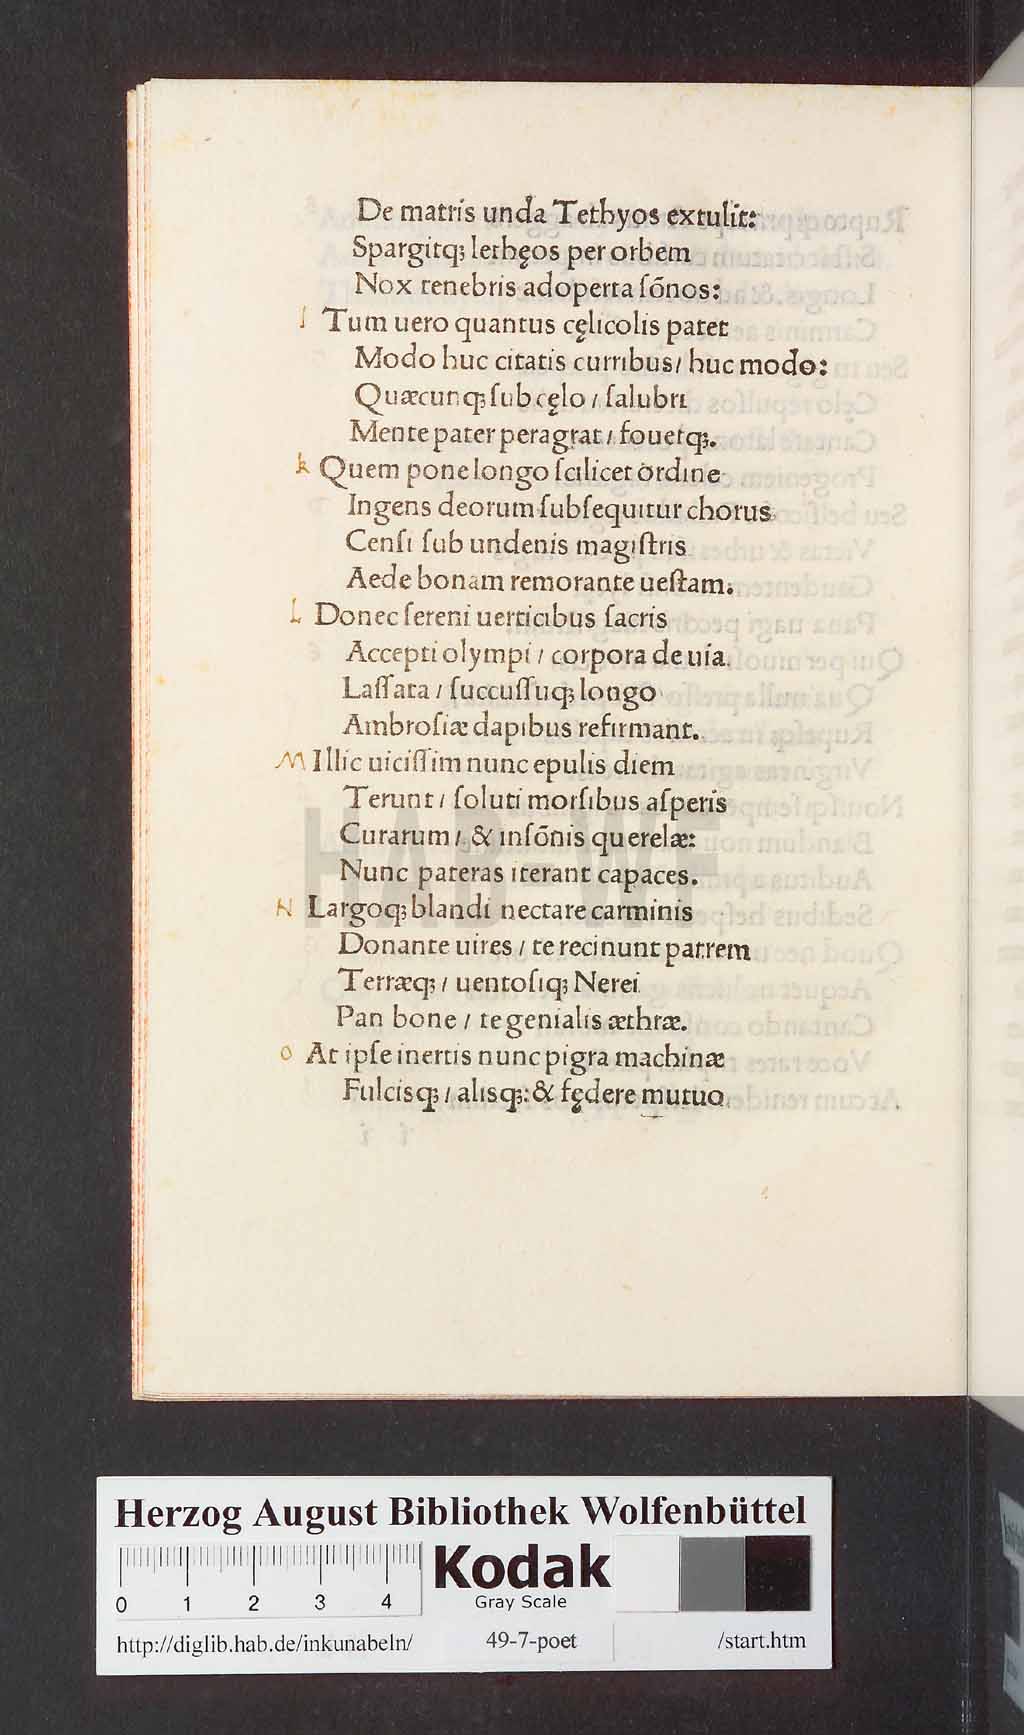 De matris unda Tethyos extulit:
Spargitq; lethęos per orbem
Nox tenebris adoperta ſõnos:
I Tum uero quantus cęlicolis patet
Modo huc citatis curribus / huc modo:
Quæcunq; ſub cęlo / ſalubri
Mente pater peragrat / fouetq;.
k Quem pone longo ſcilicet ordine
Ingens deorum ſubſequitur chorus
Cenſi ſub undenis magiſtris
Aede bonam remorante ueſtam:
L Donec ſereni uerticibus ſacris
Accepti olympi / corpora de uia
Laſſata / ſuccuſſuq; longo
Ambroſiæ dapibus refirmant.
M Illic uiciſſim nunc epulis diem
Terunt / ſoluti morſibus aſperis
Curarum / & inſõnis querelæ:
Nunc pateras iterant capaces.
N Largoq; blandi nectare carminis
Donante uires / te recinunt patrem
Terræq; / uentoſiq; Nerei
Pan bone / te genialis æthræ.
O At ipſe inertis nunc pigra machinæ
Fulcisq; / alisq;: & fędere mutuo
HAB-WF
Herzog August Bibliothek Wolfenbüttel
0 1 2 3 4
Kodak
Gray Scale
http://diglib.hab.de/inkunabeln/ 49-7-poet /start.htm